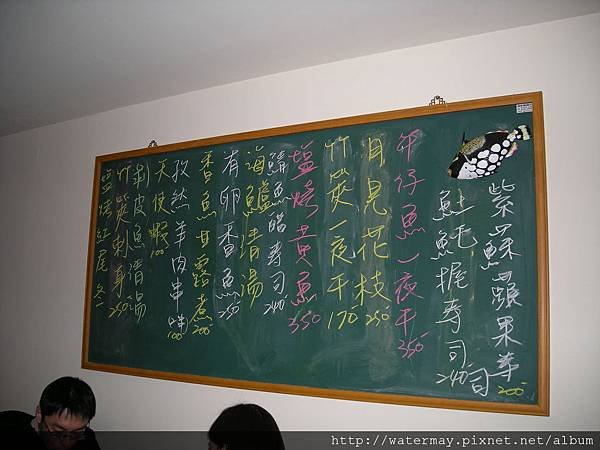 紫蘇蘋果芋 200
魠魠握寿司 240
午仔魚一夜干 350
月見花枝 250
竹筴一夜干 170
塩烤黄魚 350
鯖魚醋寿司 240
海鱸清湯
有卵香魚 250
香魚甘露煮 200
孜然羊肉串 100
天使蝦 100
剥皮魚清湯
竹筴刺身 250
塩烤紅尾冬
http://watermay.pixnet.net/album